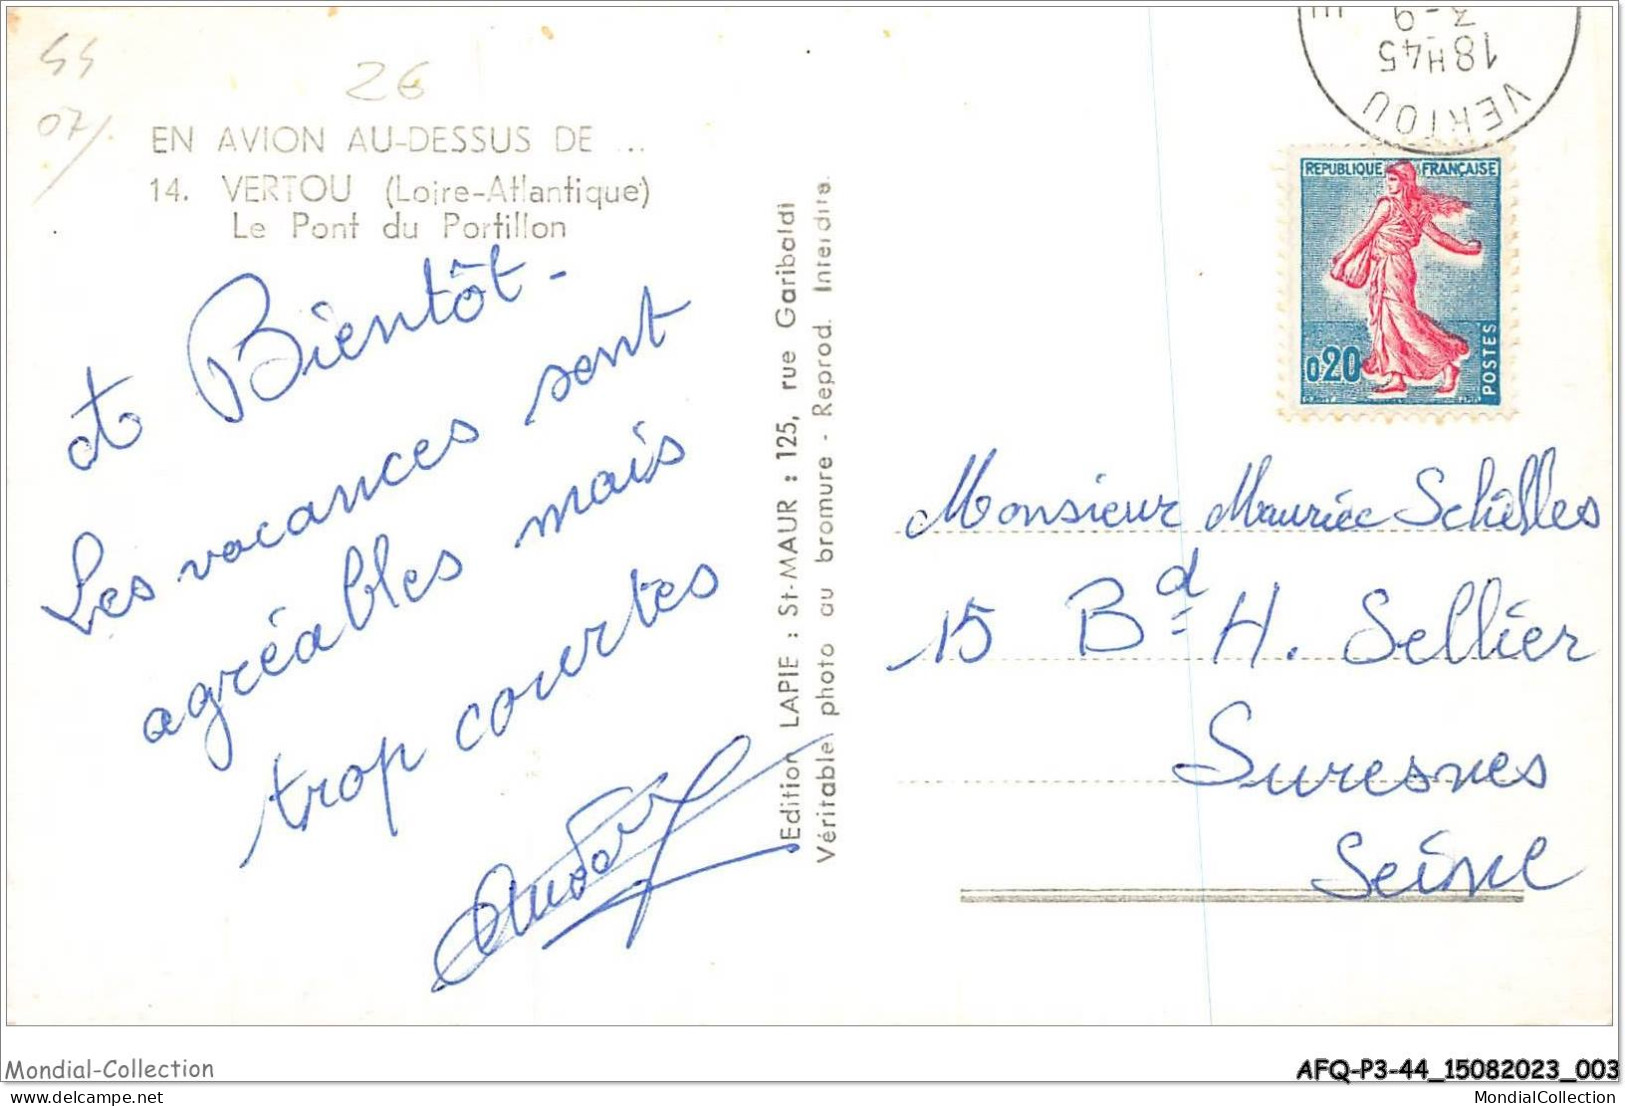 44
07/.
2€
EN AVION AU-DESSUS DE ...
14. VERTOU (Loire-Atlantique)
Le Pont du Portillon
A Bientôt -
Les vacances sont
agréables mais
trop courtes
Edition LAPIE : St-MAUR : 125, rue Garibaldi
Véritable photo au bromure - Reprod. Interdite.
3-9
18H45
VERTOU
REPUBLIQUE FRANÇAISE
0,20
POSTES
Monsieur Maurice
15 Bd H. Sellier
Suresnes
Seine
Mondial-Collection
AFQ-P3-44_15082023_003
MondialCollection